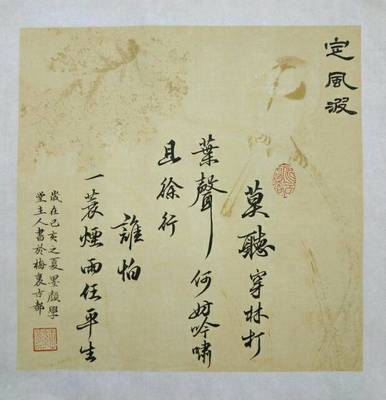 定風波
莫聽穿林打
葉聲何妨吟嘯
且徐行
誰怕
一蓑煙雨任平生
歲在己亥之夏墨顏學
堂主人書於梅裏古都